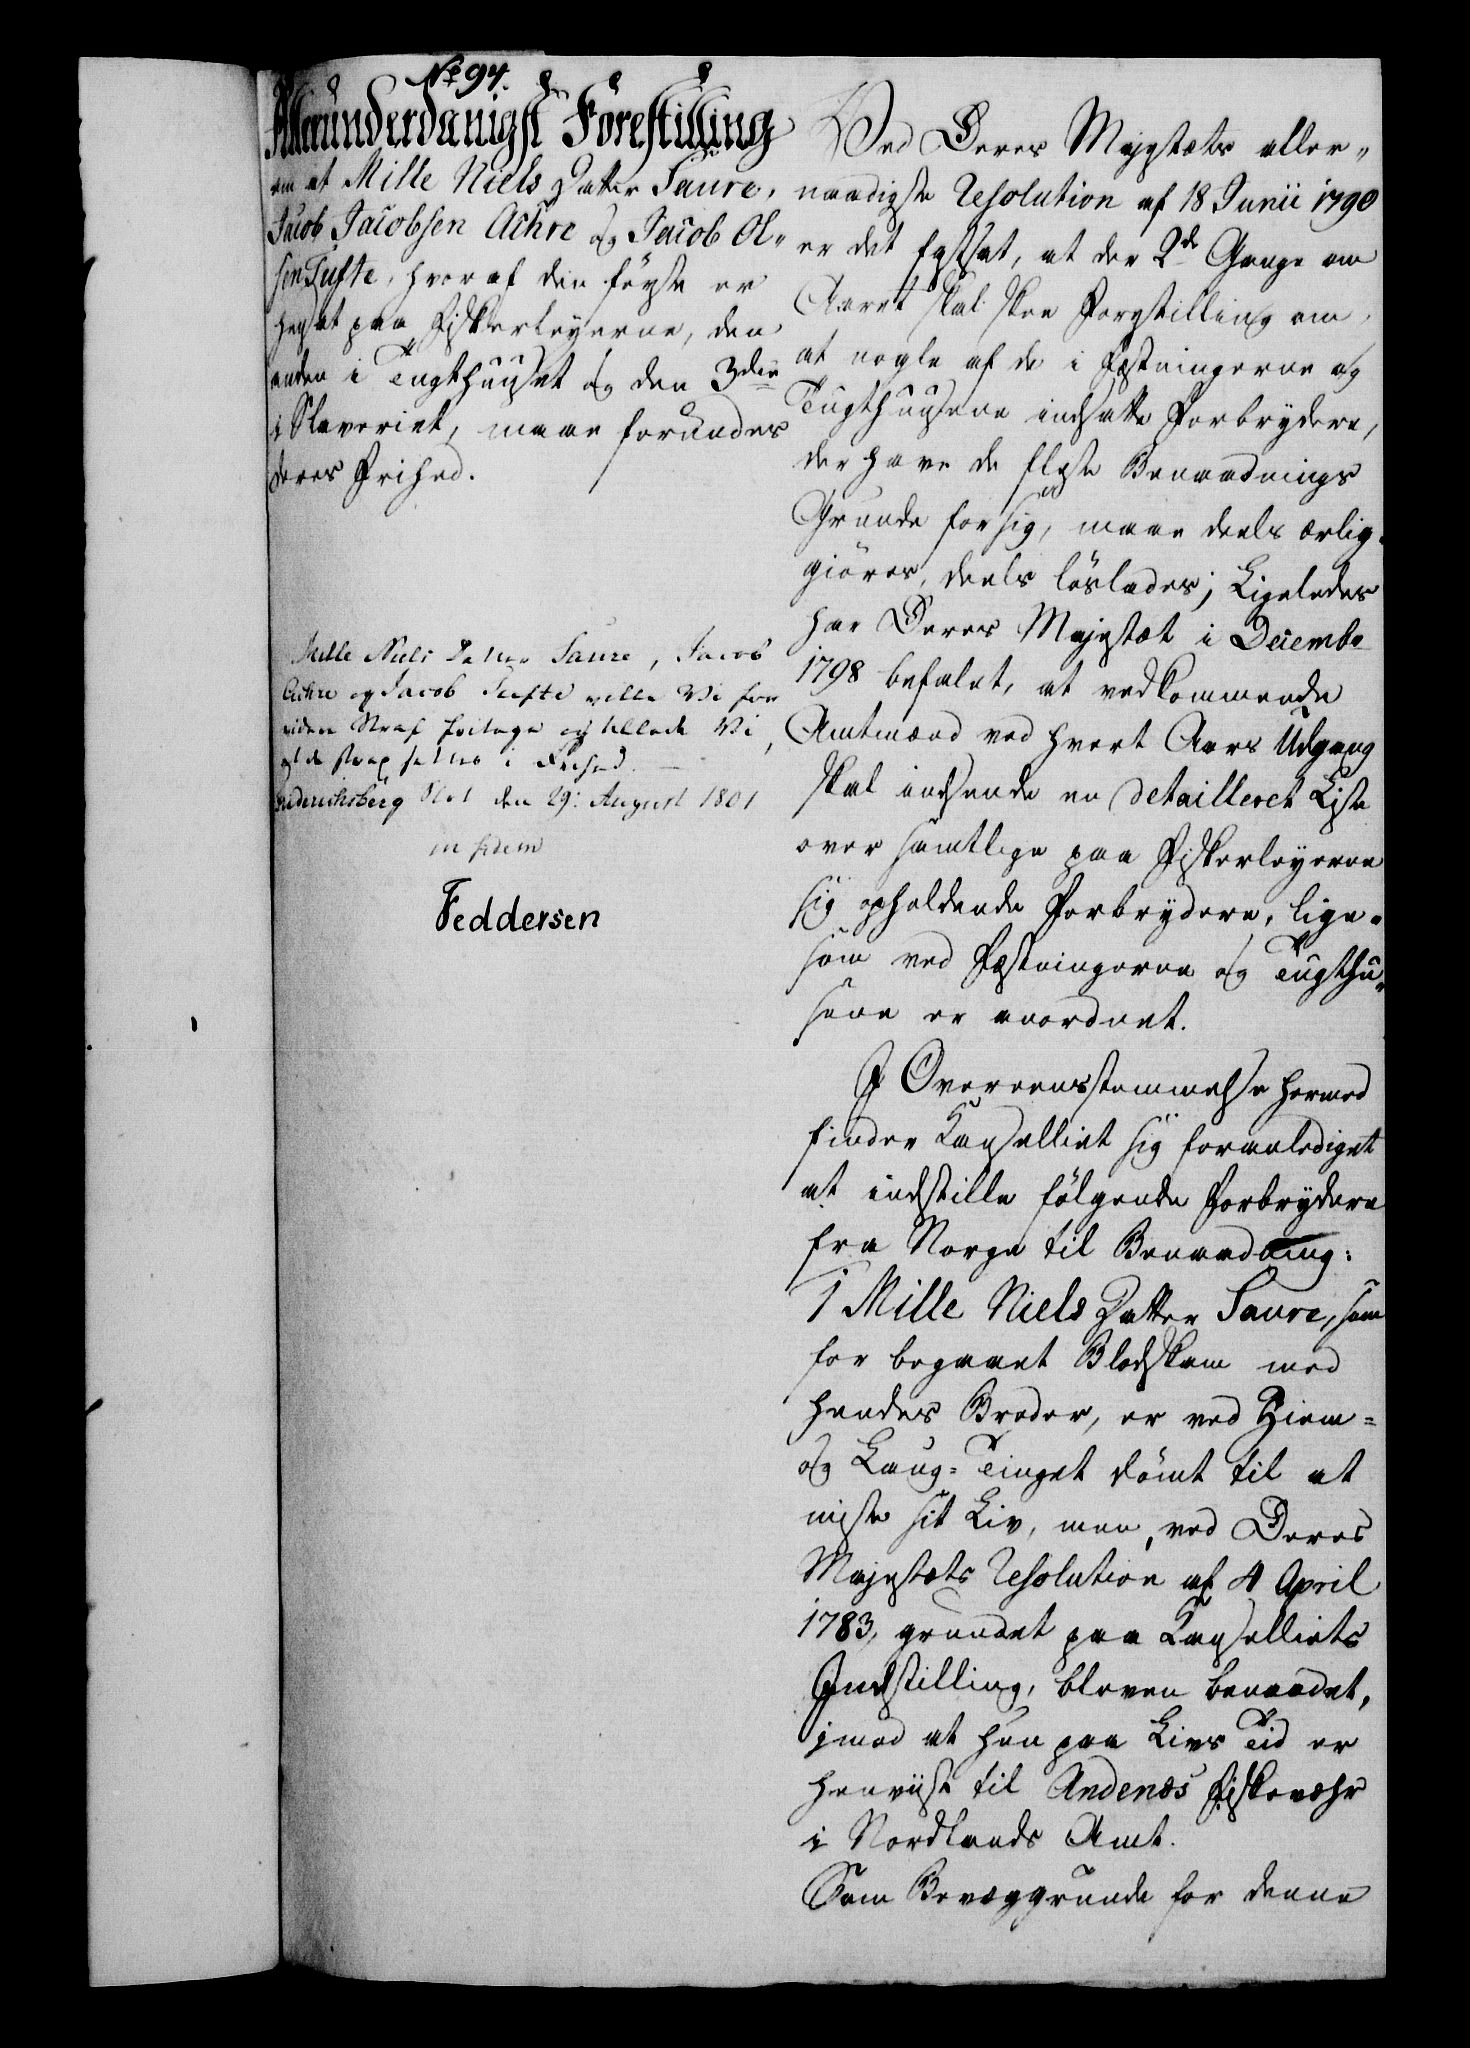 No 94.
Allerunderdanigst Forestilling
om at Mille Niels Datter Saure,
Jacob Jacobsen Achre og Jacob Ol-
sen Tufte, hvoraf den første er
hensat paa Fiskerleyerne, den
anden i Tugthuuset og den 3die
i Slaveriet, maae forundes
deres Frihed.
Mille Niels Datter Saure, Jacob
Achre og Jacob Tufte ville Vi for
videre Straf fritage og tillade Vi,
at de strax sættes i Frihed. —
Friderichsberg Slot den 29: August 1801
in fidem
Feddersen
Ved Deres Majestæts aller-
naadigste Resolution af 18 Junii 1790
er det fastsat, at der 2de Gange om
Aaret skal skee Forestilling om,
at nogle af de i Fæstningerne og
Tugthuusene indsatte Forbrydere,
der have de fleste Benaadnings
Grunde for sig, maae deels ærlig-
giöres, deels löslades; Ligeledes
har Deres Majestæt i Decembr
1798 befalet, at vedkommende
Amtmænd ved hvert Aars Udgang
skal indsende en detailleret Liste
over samtlige paa Fiskerleyerne
sig opholdende Forbrydere, lige-
som ved Fæstningerne og Tugthu-
sene er anordnet.
I Overeensstemmelse hermed
finder Cancelliet sig foranlediget
at indstille fölgende Forbrydere
fra Norge til Benaadning:
1 Mille Niels Datter Saure, som
for begaaet Blodskam med
hendes Broder, er ved Hiem-
og Laug-Tinget dömt til at
miste sit Liv, men, ved Deres
Majestæts Resolution af 4 April
1783, grundet paa Cancelliets
Indstilling, bleven benaadet,
imod at hun paa Livs Tid er
henviist til Andenæs Fiskevæhr
i Nordlands Amt.
Som Bevæggrunde for denne